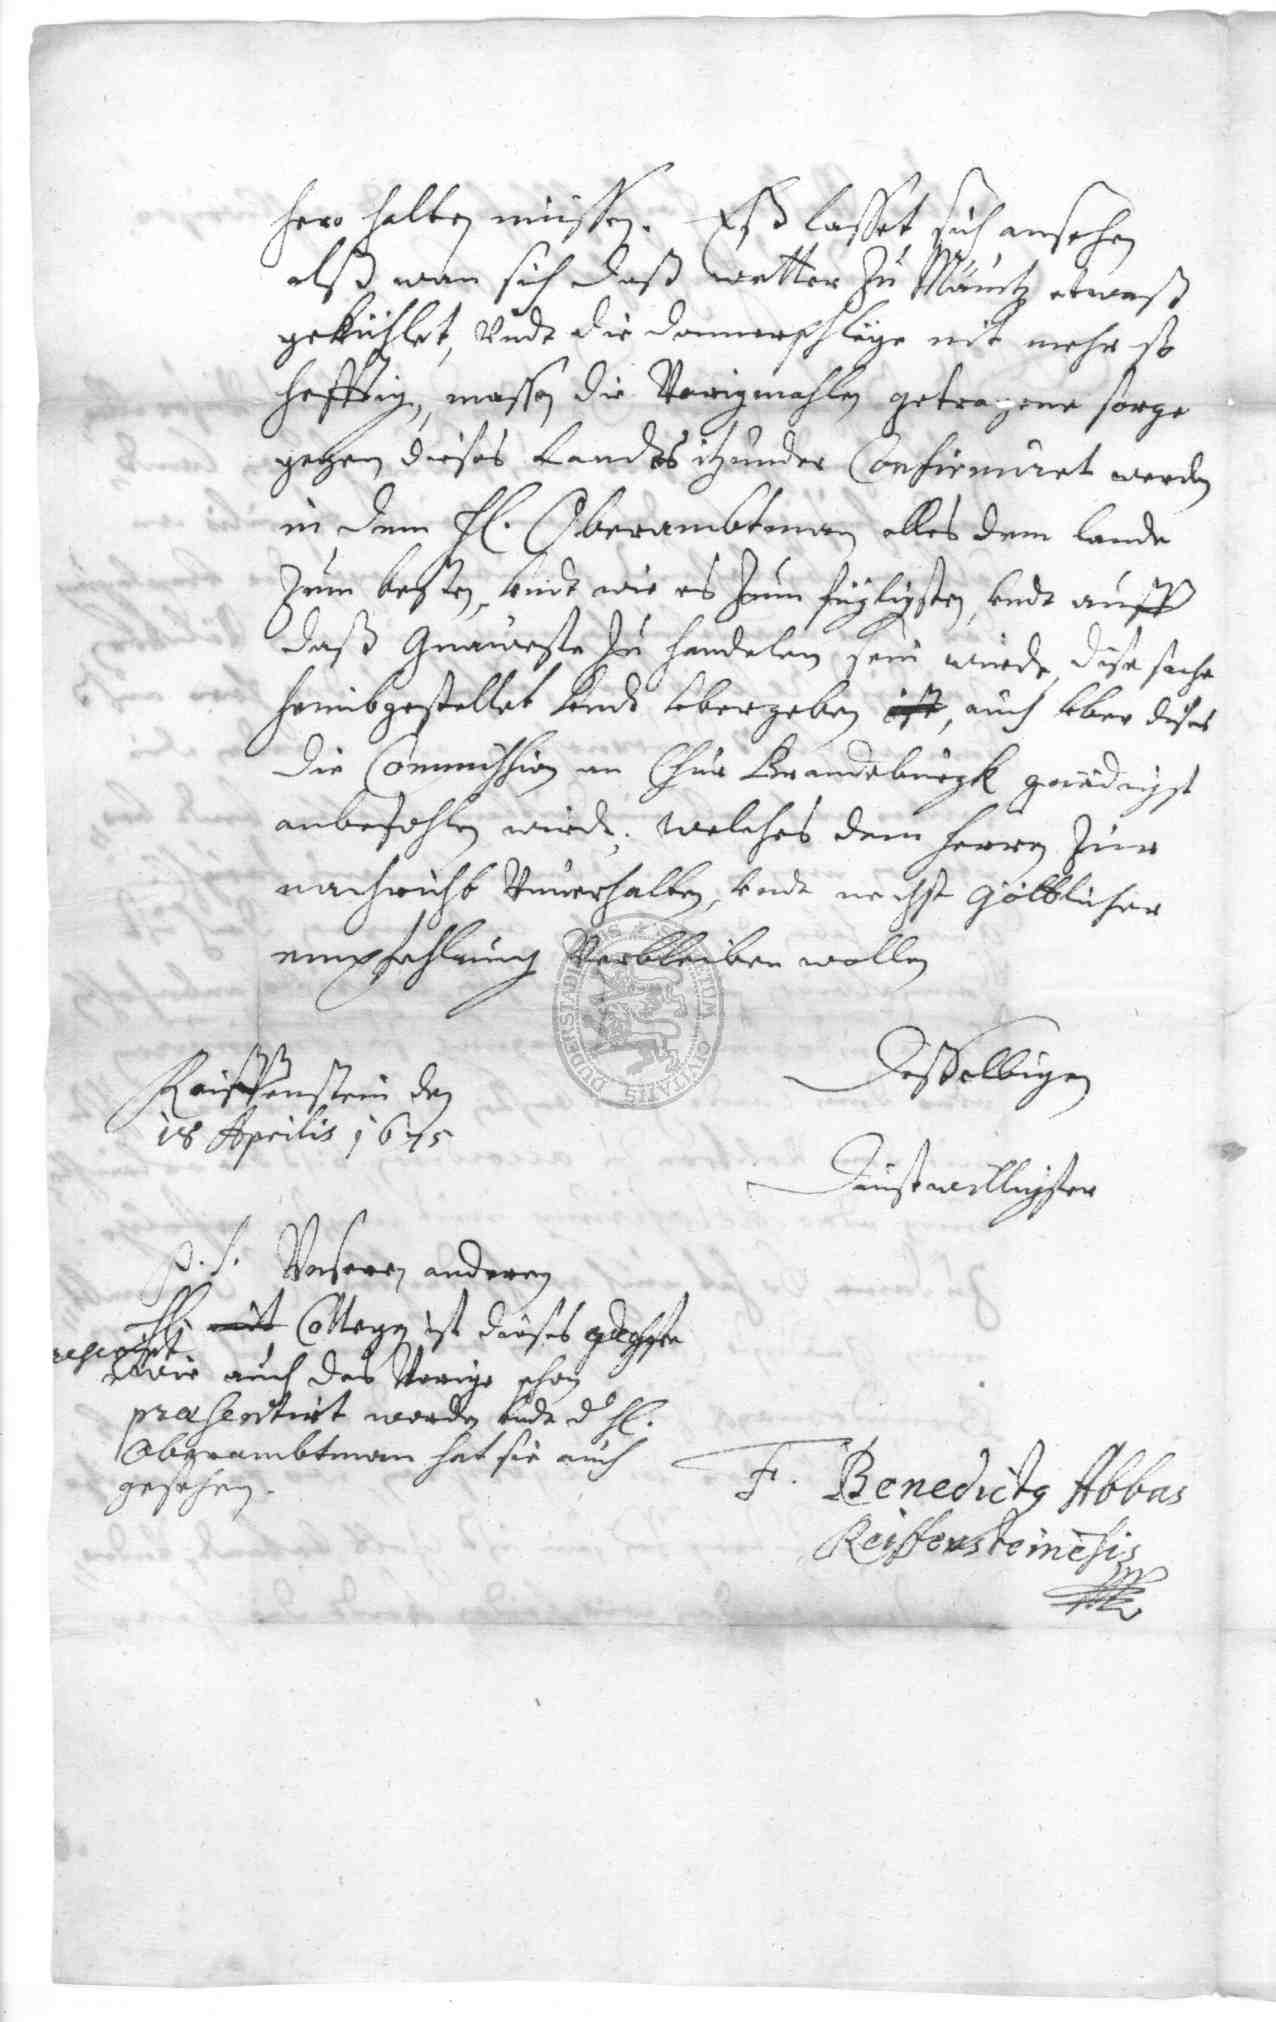 hero halten müssen. Eß lasset sich ansehen
alß wan sich daß wetter zu Maintz etwaß
gekühlet, vndt die donnerschläge nit mehr so
hefftig, massen die Vorigmahlen getragene sorge
gegen dieses Landts itzunder Confirmiret werden
in dem Hl. Oberambtman alles dem lande
zum besten, vndt wie es zum fügligsten, vndt auff
daß gnaweste zu handelen sein würde, dise sache
heimbgestellet vndt vbergeben iste, auch vber dises
die Commission an Chur Brandeburgk gnädigst
anbefohlen wirdt. welches dem herren zur
nachricht vnuerhalten, vndt nechst göttlicher
empfehlung Verbleiben wollen
Reiffenstein den
18 Aprilis 1675
Desselbigen
Dinstwilligster
P. S. Vnseren anderen
Hl. mit Collegen ist dieses
wie auch das Vorige schon
præsentirt worden vndt d Hl.
Oberambtman hat sie auch
gesehen.
F. Benedictq Abbas
Reiffensteinēsis
SIGILLUM CIVITATIS DUDERSTADIENSIS